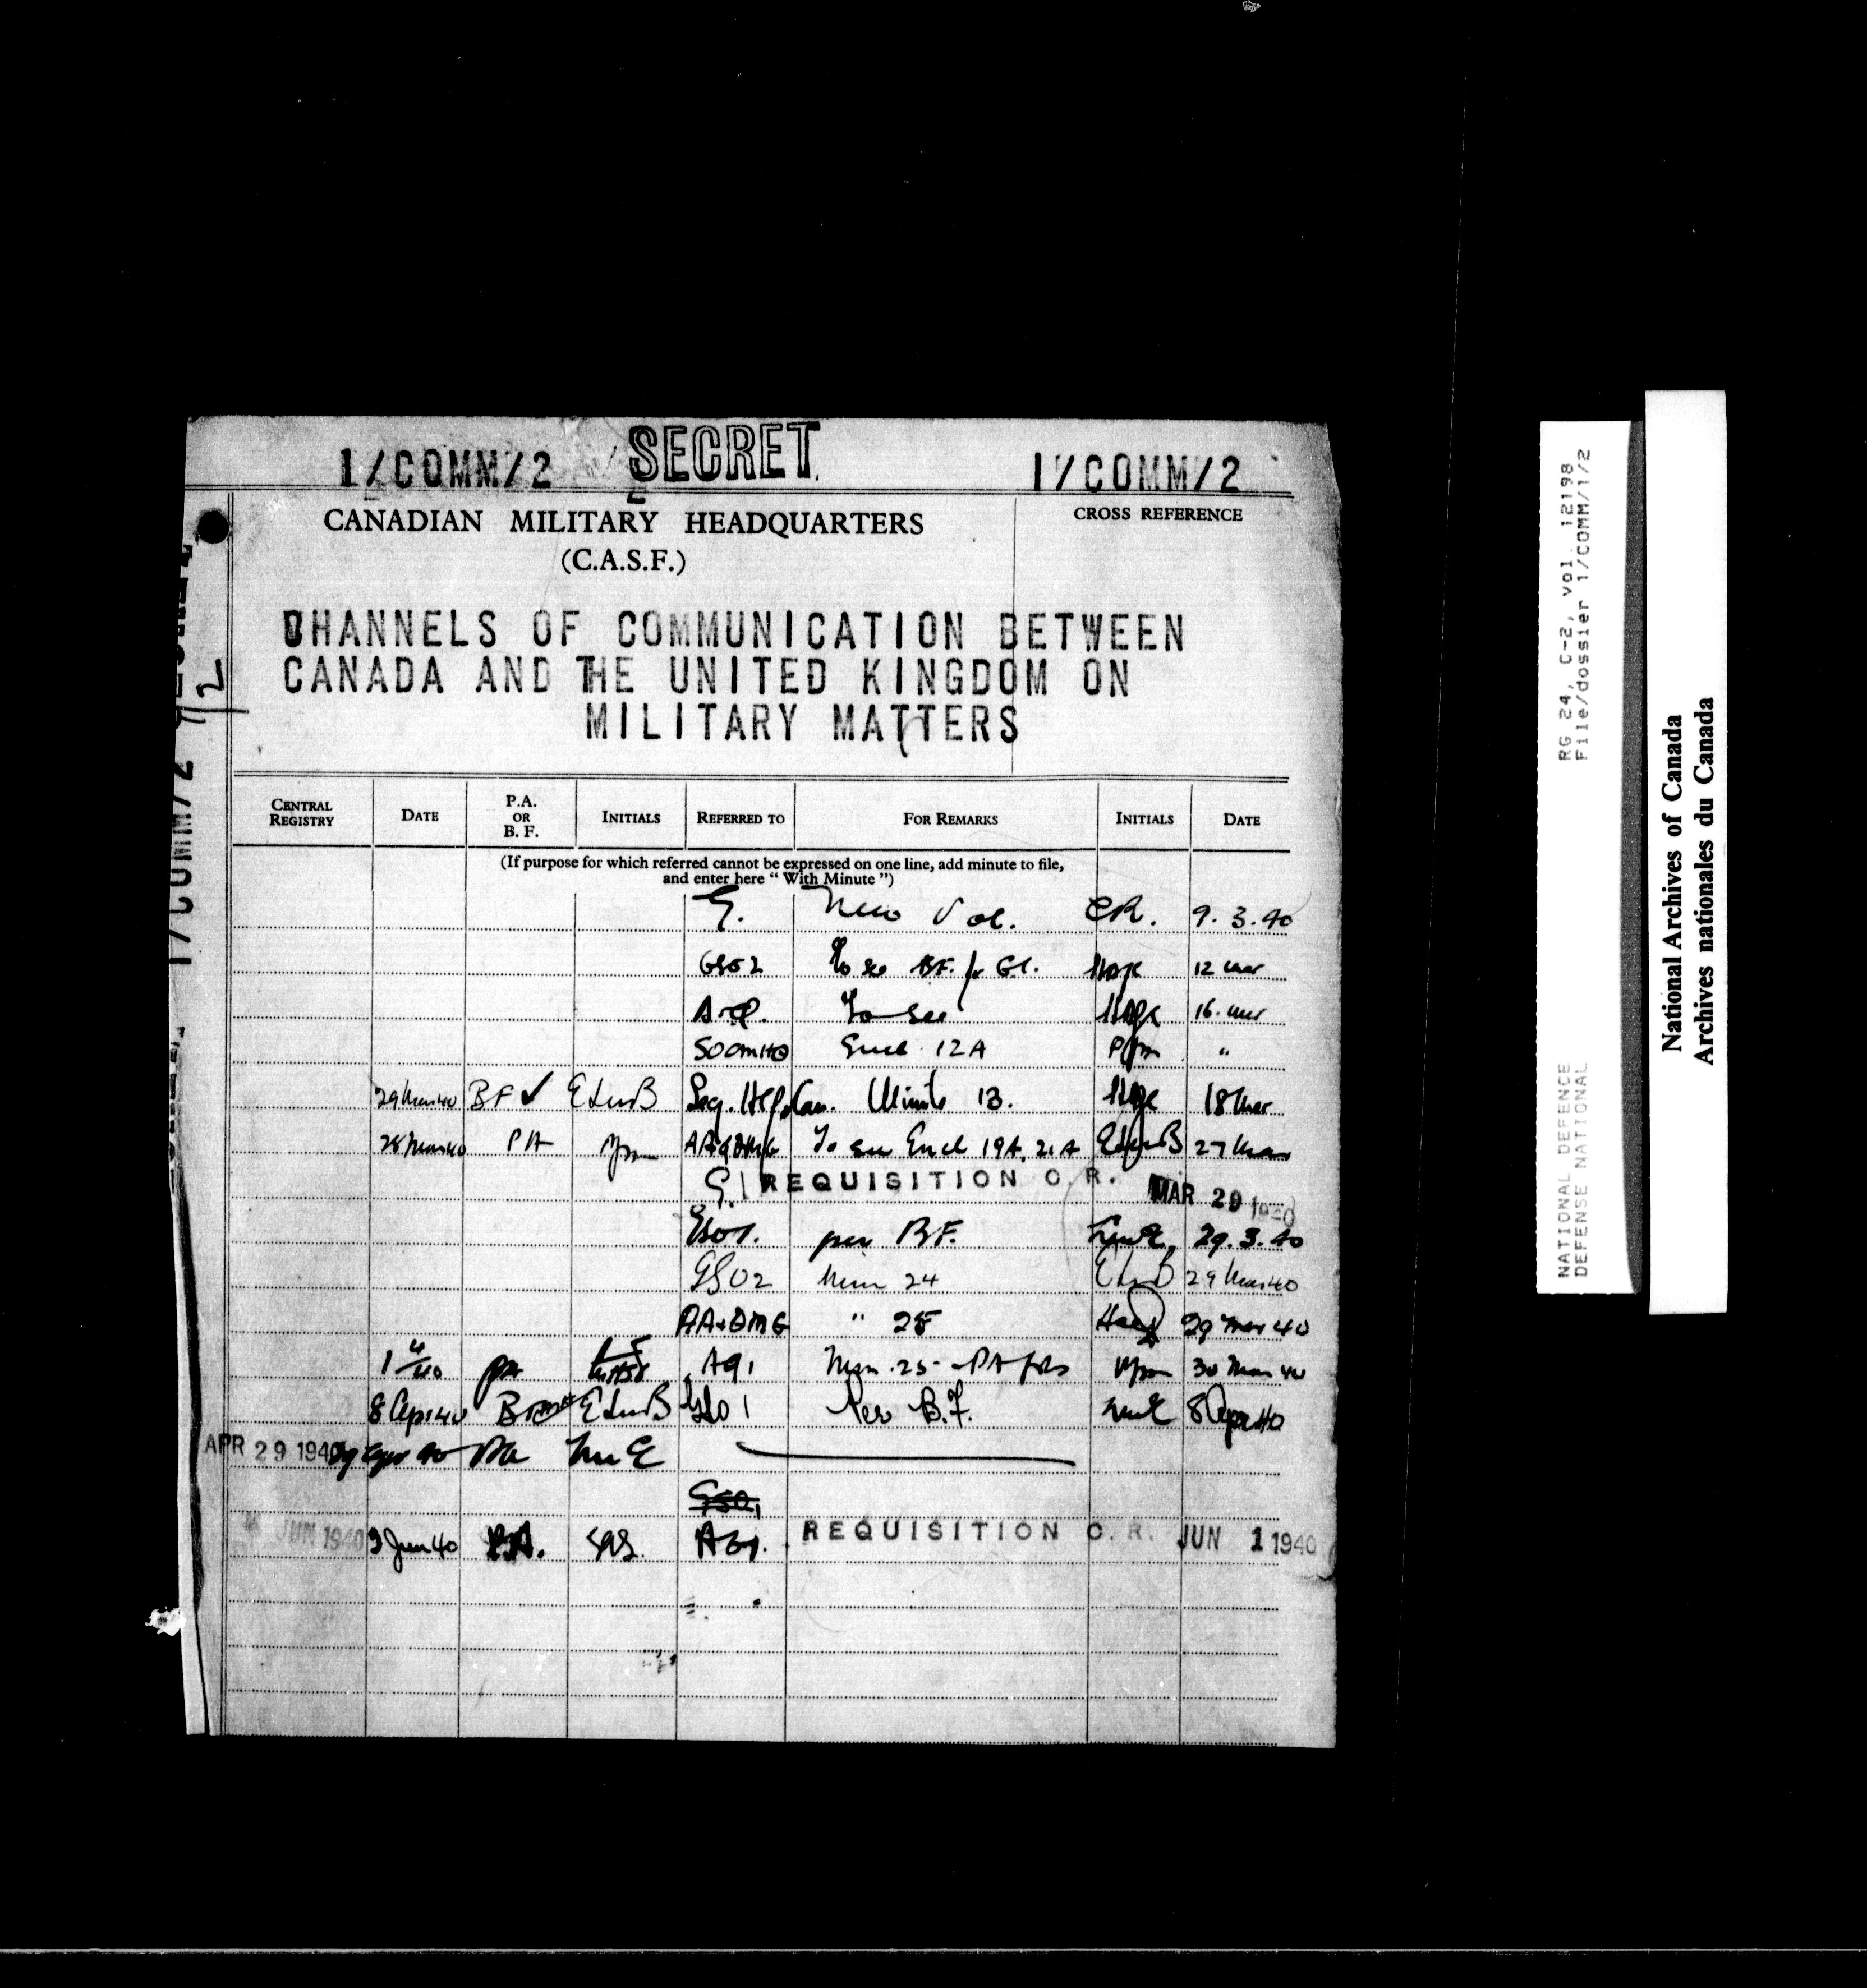 1/COMM/2 SECRET 1/COMM/2
2
CANADIAN MILITARY HEADQUARTERS
(C.A.S.F.)
CROSS REFERENCE
CHANNELS OF COMMUNICATION BETWEEN
CANADA AND THE UNITED KINGDOM ON
MILITARY MATTERS
CENTRAL REGISTRY DATE P.A. OR B. F. INITIALS REFERRED TO FOR REMARKS INITIALS DATE
(If purpose for which referred cannot be expressed on one line, add minute to file,
and enter here " With Minute ")
G. New Vol. CR. 9.3.40
GSO2 To see BF. for G1. 12 Mar
To see 16. Mar
Encl 12A "
29 Mar 40 BF ✓ Can. Minute 13. 18 Mar
28 Mar 40 PA AA&QMG To see Encl 19A, 21A 27 Mar
G. REQUISITION C.R. MAR 29 1940
GSO1. per BF. 29.3.40
GSO2 Min 24 29 Mar 40
AA&QMG " 25 29 Mar 40
1 4/40 PA AQ1 Min. 25 - PA pls 30 Mar 40
8 Apr 40 GSO1 Per B.F. 8 Apr 40
APR 29 1940 29 Apr 40 PA
GSO1
JUN 1940 3 Jun 40 P.A. REQUISITION C.R. JUN 1 1940
1/COMM/2
RG 24, C-2, vol. 12198
File/dossier 1/COMM/1/2
NATIONAL DEFENCE
DEFENSE NATIONAL
National Archives of Canada
Archives nationales du Canada